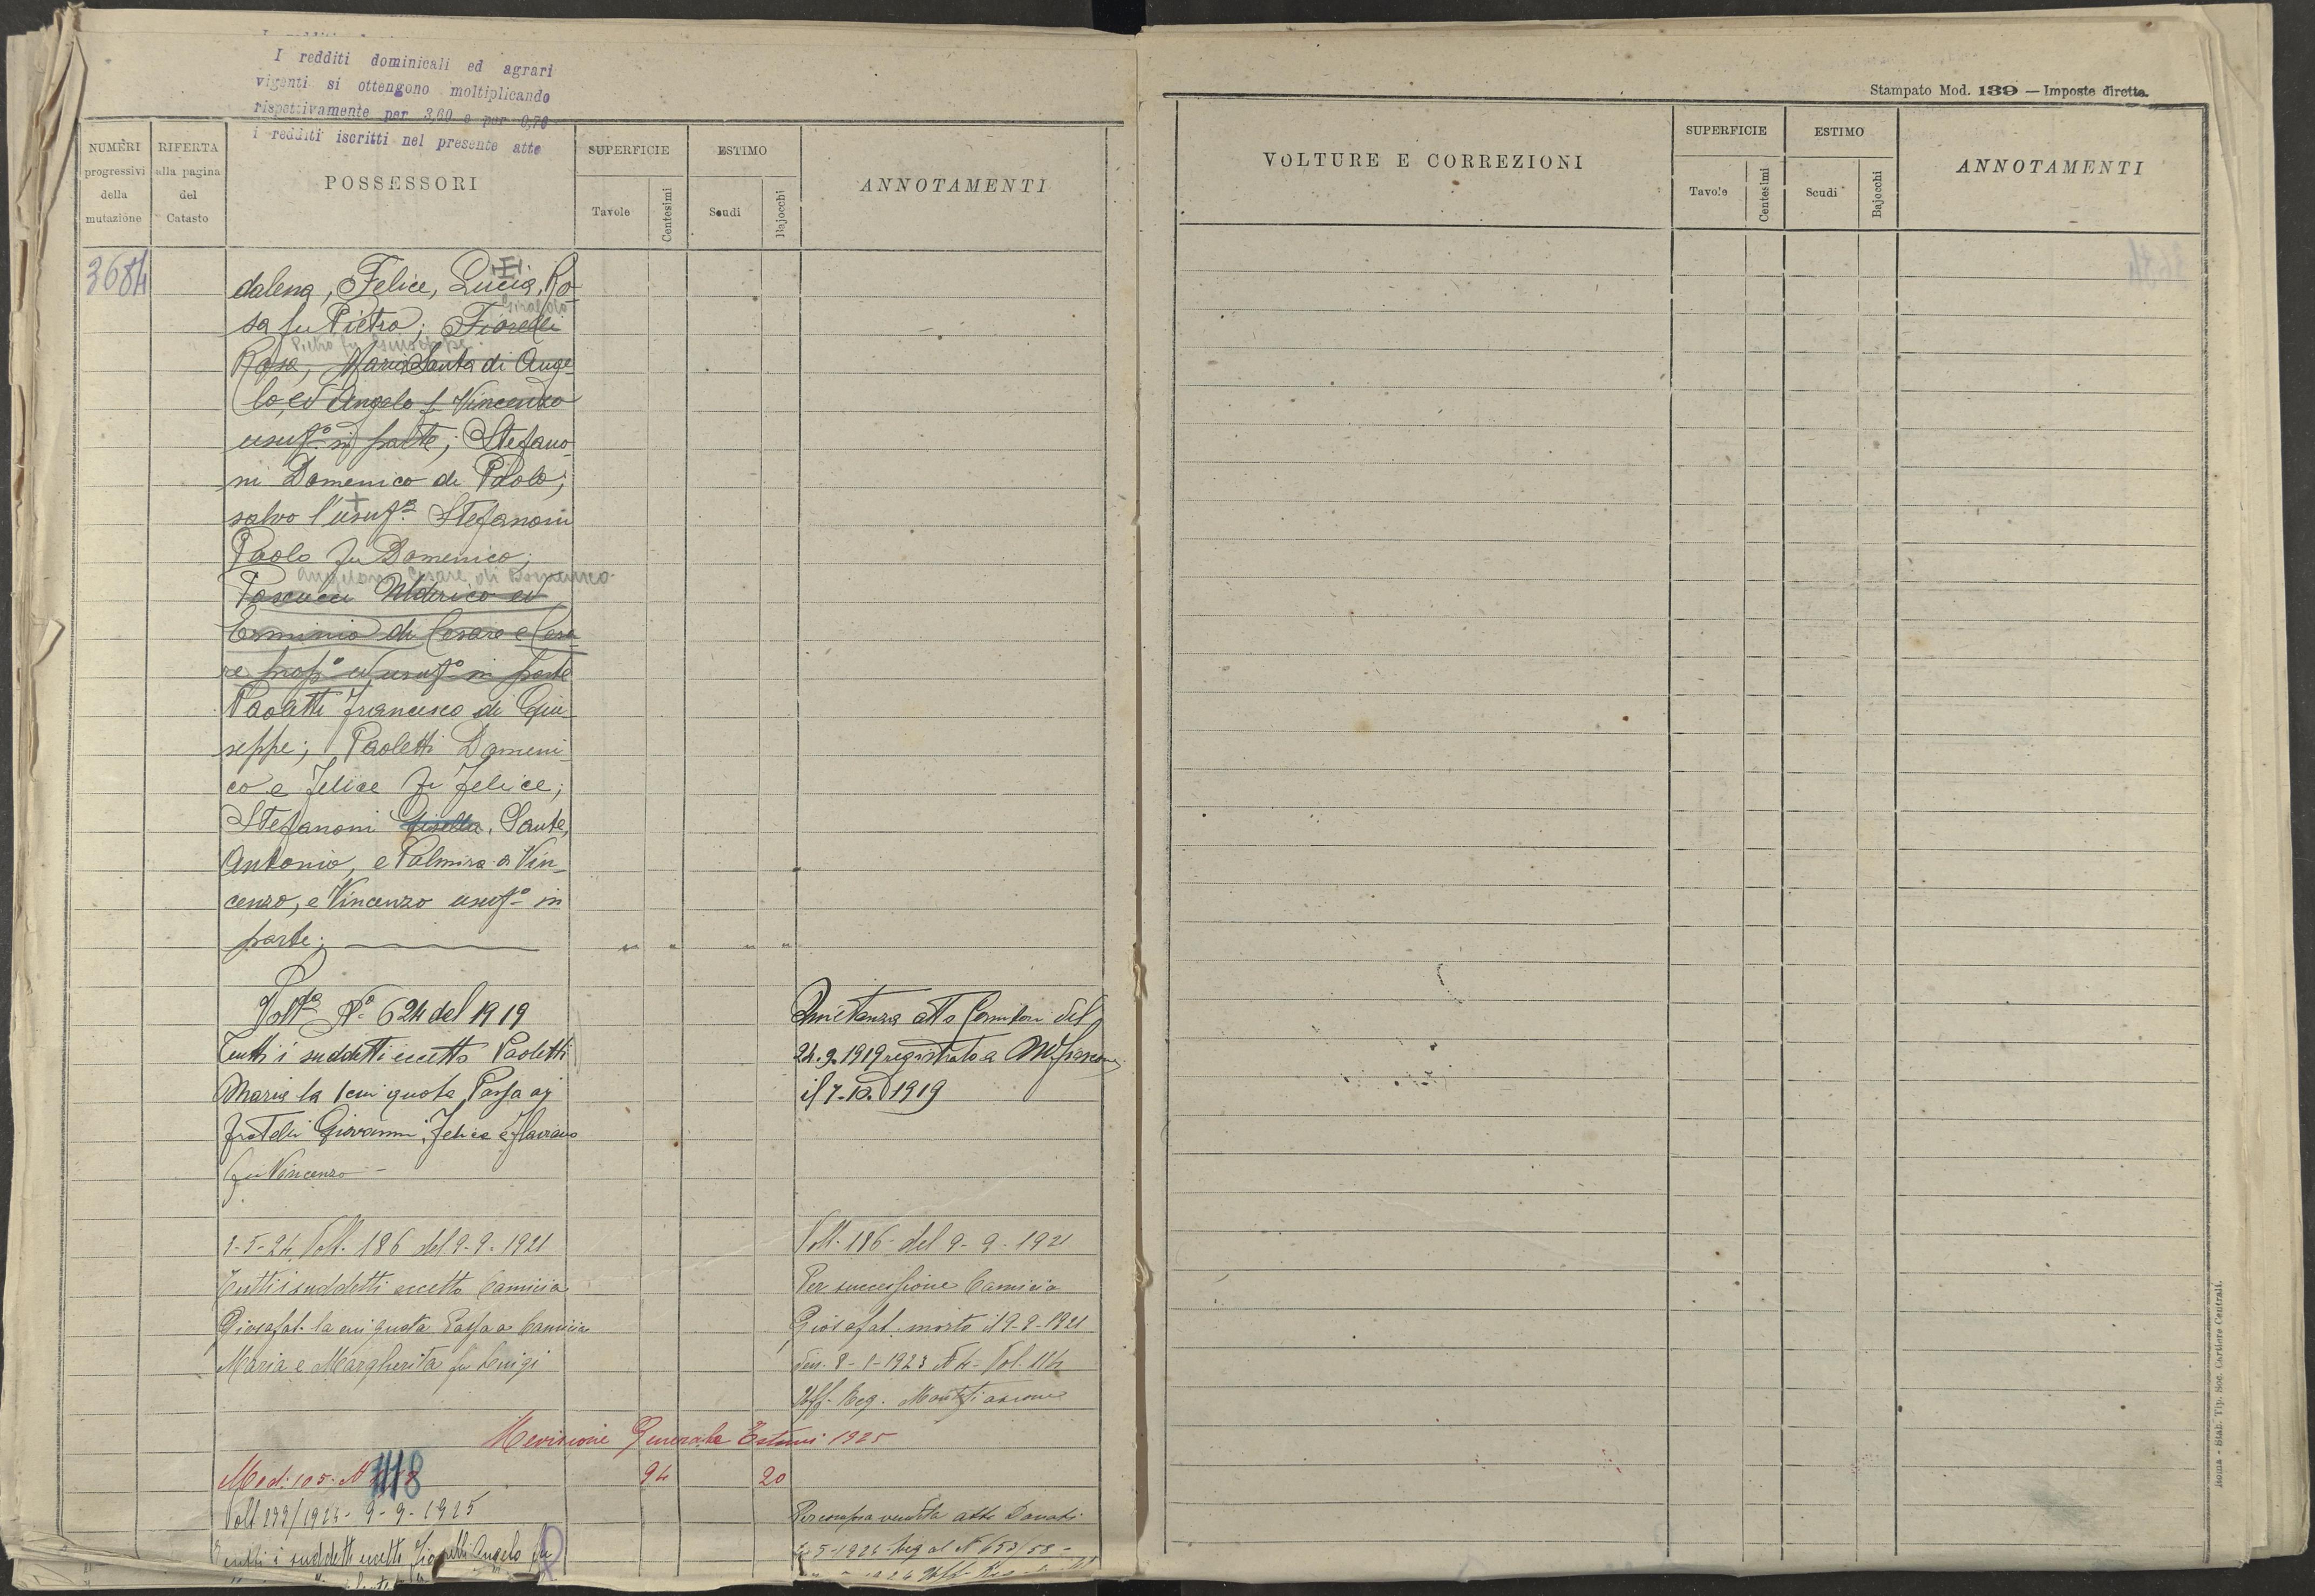 I redditi dominicali ed agrari
vigenti si ottengono moltiplicando
rispettivamente per 3,60 e per 0,70
i redditi iscritti nel presente atto
NUMERI progressivi della mutazione
RIFERTA alla pagina del Catasto
POSSESSORI
SUPERFICIE
Tavole
Centesimi
ESTIMO
Scudi
Bajocchi
ANNOTAMENTI
3684
dalena, Felice, Lucia, Ro-
sa fu Pietro; Fiorelli
Pietro fu Giuseppe
Rosa, Maria Santa di Ange
lo, ed Angelo f. Vincenzo
usuf.º in parte; Stefano
ni Domenico di Paolo;
salvo l'usuf.º Stefanoni
Paolo fu Domenico;
Cesare di Domenico
Pascucci Ulderico ed
Erminio di Cesare e Cesa
re prop.º ed usuf.º in parte
Paoletti Francesco di Giu-
seppe; Paoletti Domeni
co e Felice fu Felice;
Stefanoni Gisella, Sante,
Antonio, e Palmira di Vin-
cenzo, e Vincenzo usuf.º in
parte;
Volt.ª N.º 624 del 1919
Tutti i suddetti eccetto Paoletti
Maria la cui quota Passa ai
fratelli Giovanni, Felice e Flaviano
fu Vincenzo -
Quietanza atto del
24.9.1919 registrato a
il 7-10-1919
3-5-24 Volt. 186 del 9-9-1921
Tutti i suddetti eccetto Camicia
Giosafat la cui quota Passa a Camicia
Maria e Margherita fu Luigi
Volt. 186 del 9-9-1921
Per successione Camicia
Giosafat morto il 9-9-1921
den. 8-1-1923 N 4- Vol. 114
Uff. Reg. Montefiascone
Revisione Generale Estimi 1925
Mod. 105. N 1118
94
20
Volt 299/1924 - 9-9-1925
Tutti i suddetti eccetto Fiorelli Angelo fu
Per compra vendita atto Donati
-5-1924 Reg al N 653/58 -
Stampato Mod. 139 — Imposte dirette.
VOLTURE E CORREZIONI
SUPERFICIE
Tavole
Centesimi
ESTIMO
Scudi
Bajocchi
ANNOTAMENTI
Roma - Stab. Tip. Soc. Cartiere Centrali.